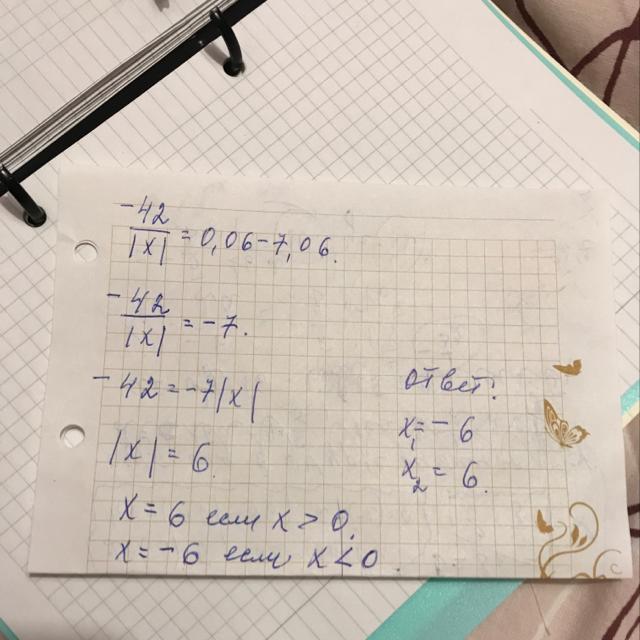 -42/|x| = 0,06-7,06.
-42/|x| = -7.
-42 = -7|x|
|x| = 6.
x = 6 если x > 0.
x = -6 если x < 0
Ответ:
x₁ = -6
x₂ = 6.